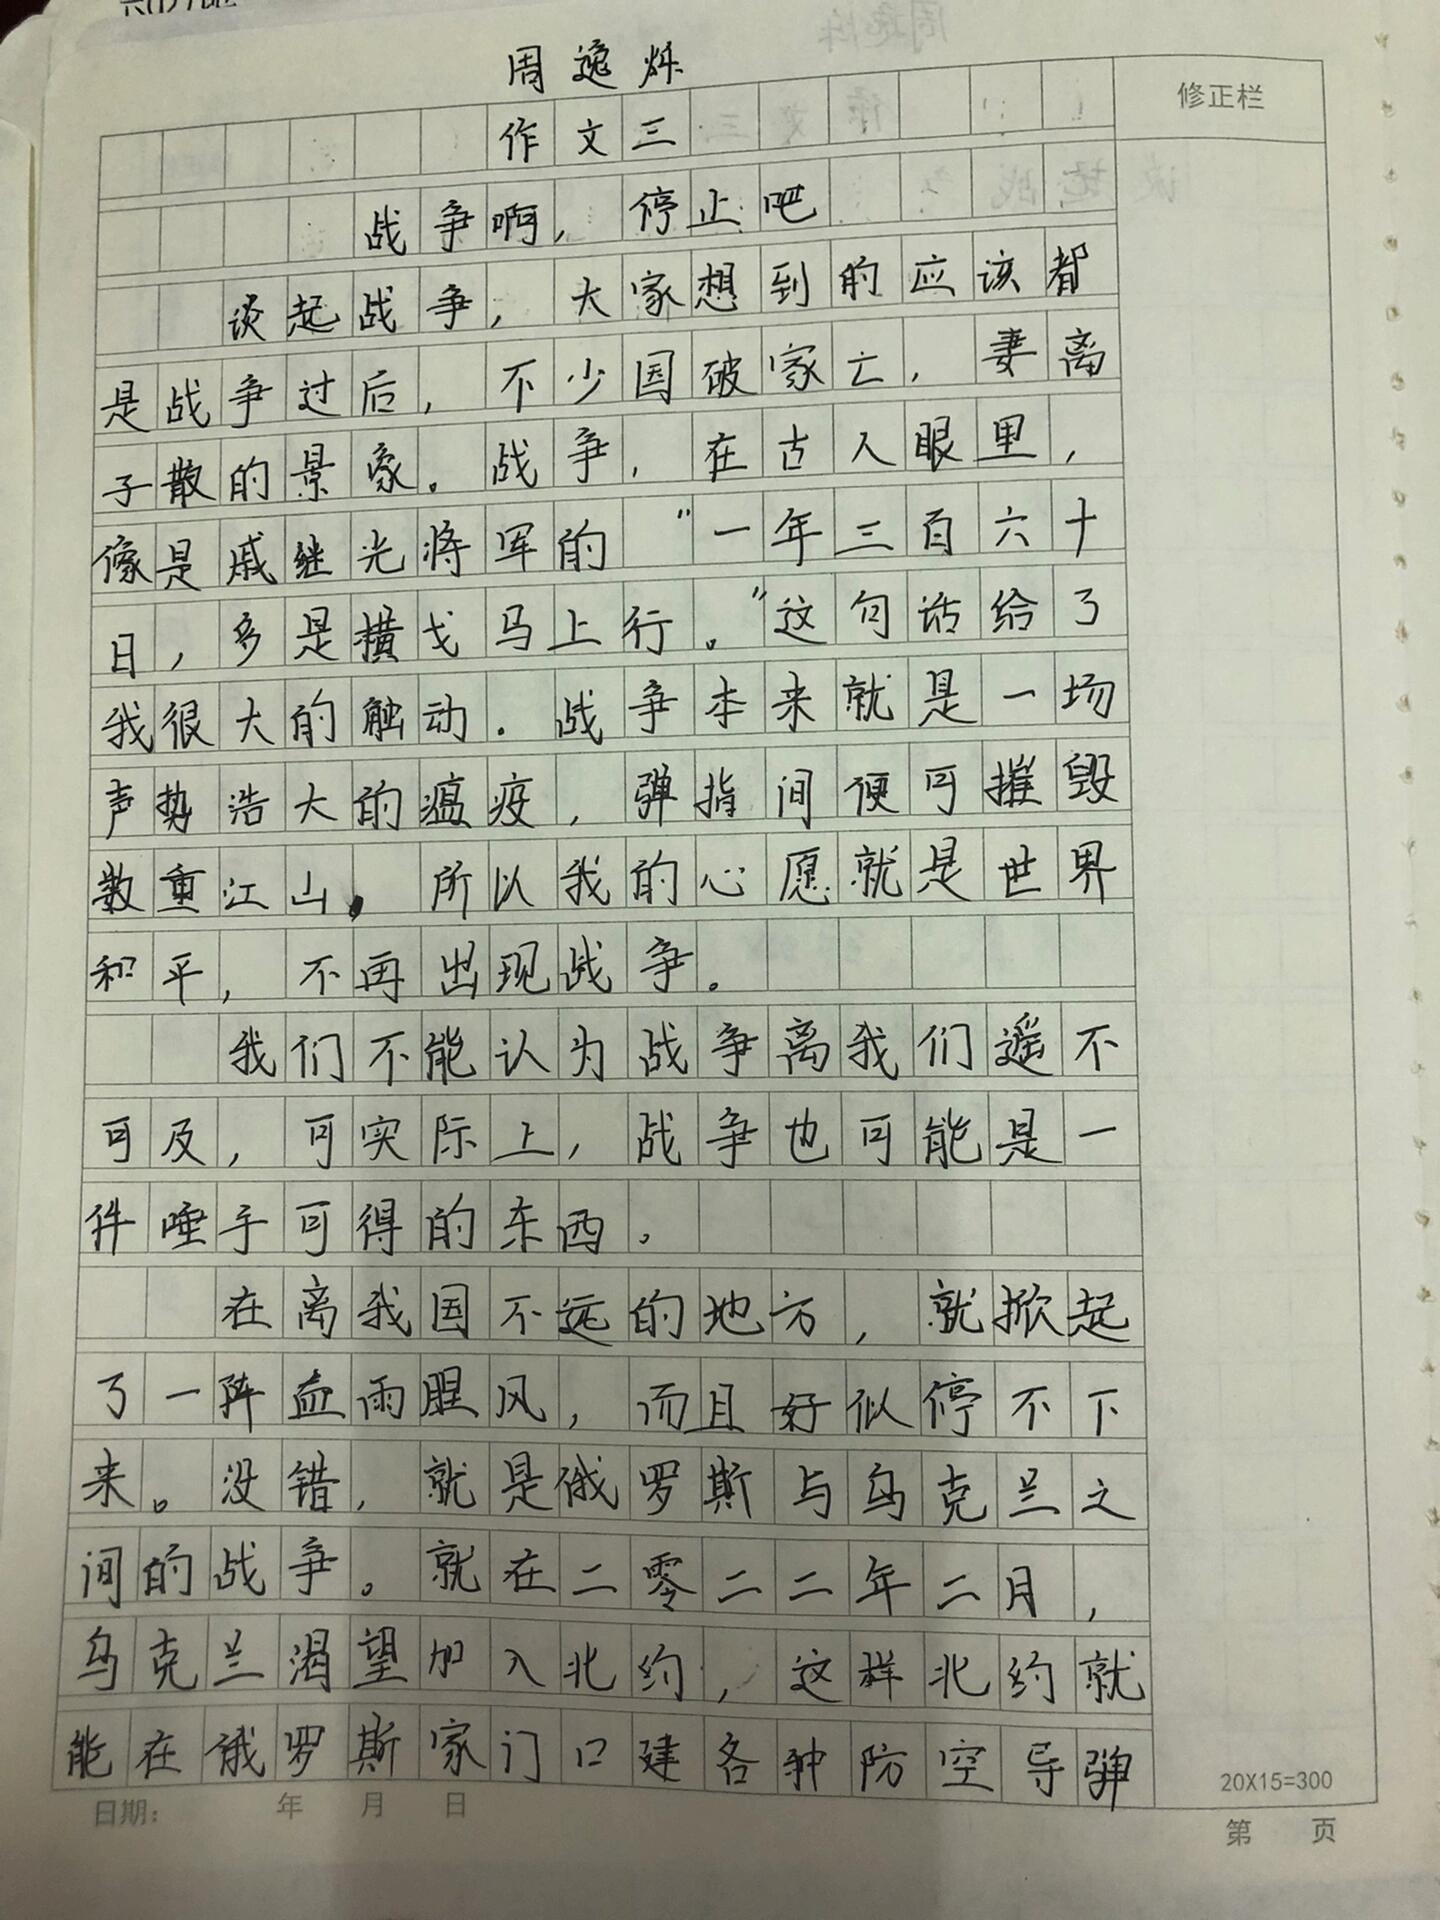 周逸烁
修正栏
作文三
战争啊，停止吧
谈起战争，大家想到的应该都
是战争过后，不少国破家亡，妻离
子散的景象。战争，在古人眼里，
像是戚继光将军的“一年三百六十
日，多是横戈马上行。”这句话给了
我很大的触动。战争本来就是一场
声势浩大的瘟疫，弹指间便可摧毁
数重江山。所以我的心愿就是世界
和平，不再出现战争。
我们不能认为战争离我们遥不
可及，可实际上，战争也可能是一
件唾手可得的东西。
在离我国不远的地方，就掀起
了一阵血雨腥风，而且好似停不下
来。没错，就是俄罗斯与乌克兰之
间的战争。就在二零二二年二月，
乌克兰渴望加入北约，这样北约就
能在俄罗斯家门口建各种防空导弹
20X15=300
日期： 年 月 日
第 页